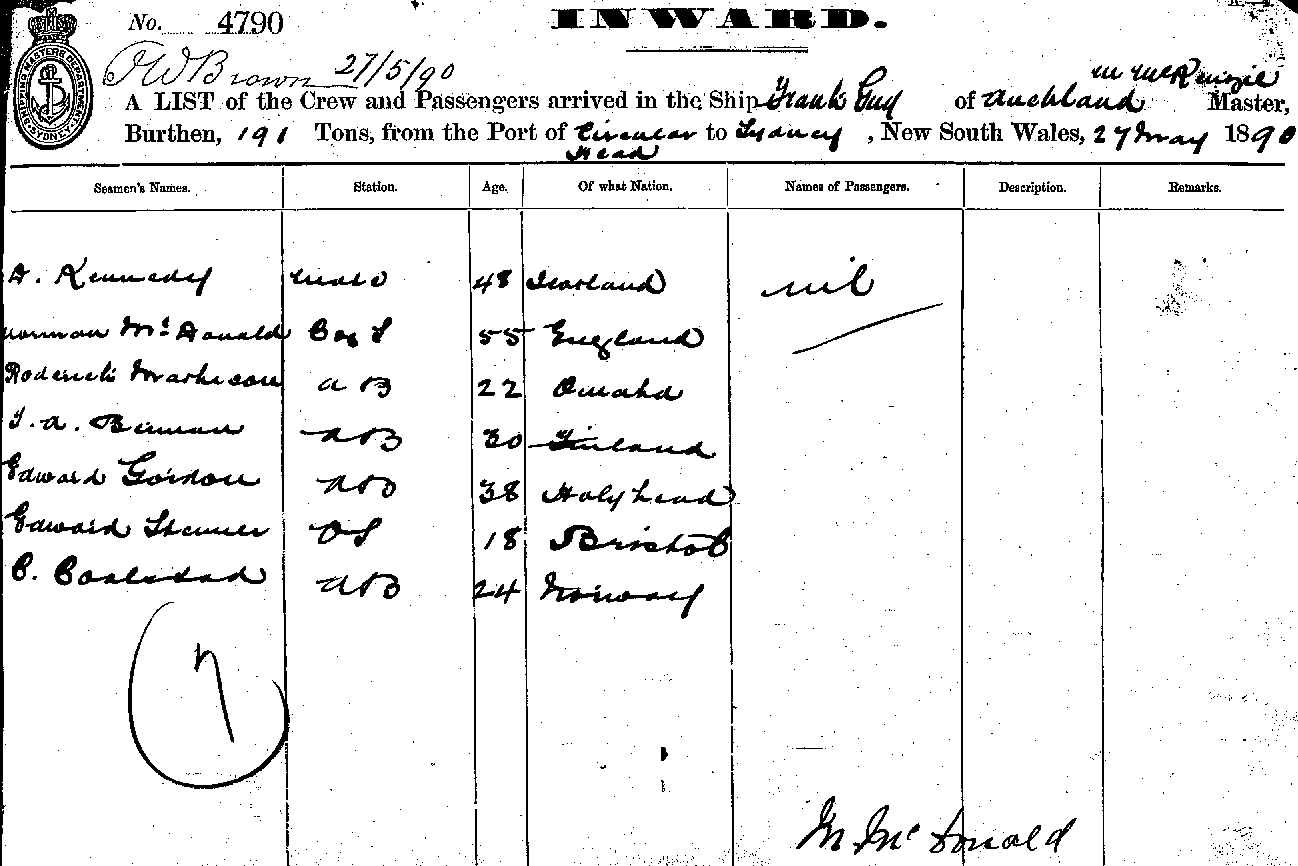 No. 4790
INWARD.
J W Brown 27/5/90
M McKenzie
A LIST of the Crew and Passengers arrived in the Ship Frank Guy of Auckland Master,
Burthen, 191 Tons, from the Port of Circular Head to Sydney, New South Wales, 27 May 1890
Seamen's Names. Station. Age. Of what Nation. Names of Passengers. Description. Remarks.
A. Kennedy Mate 48 Scotland nil
Norman McDonald Bos 55 England
Roderick Matheson A B 22 Omaha
A B 30 Finland
Edward Gordon A B 38 Holyhead
Edward O S 18 Bristol
C. A B 24 Norway
7
M McDonald